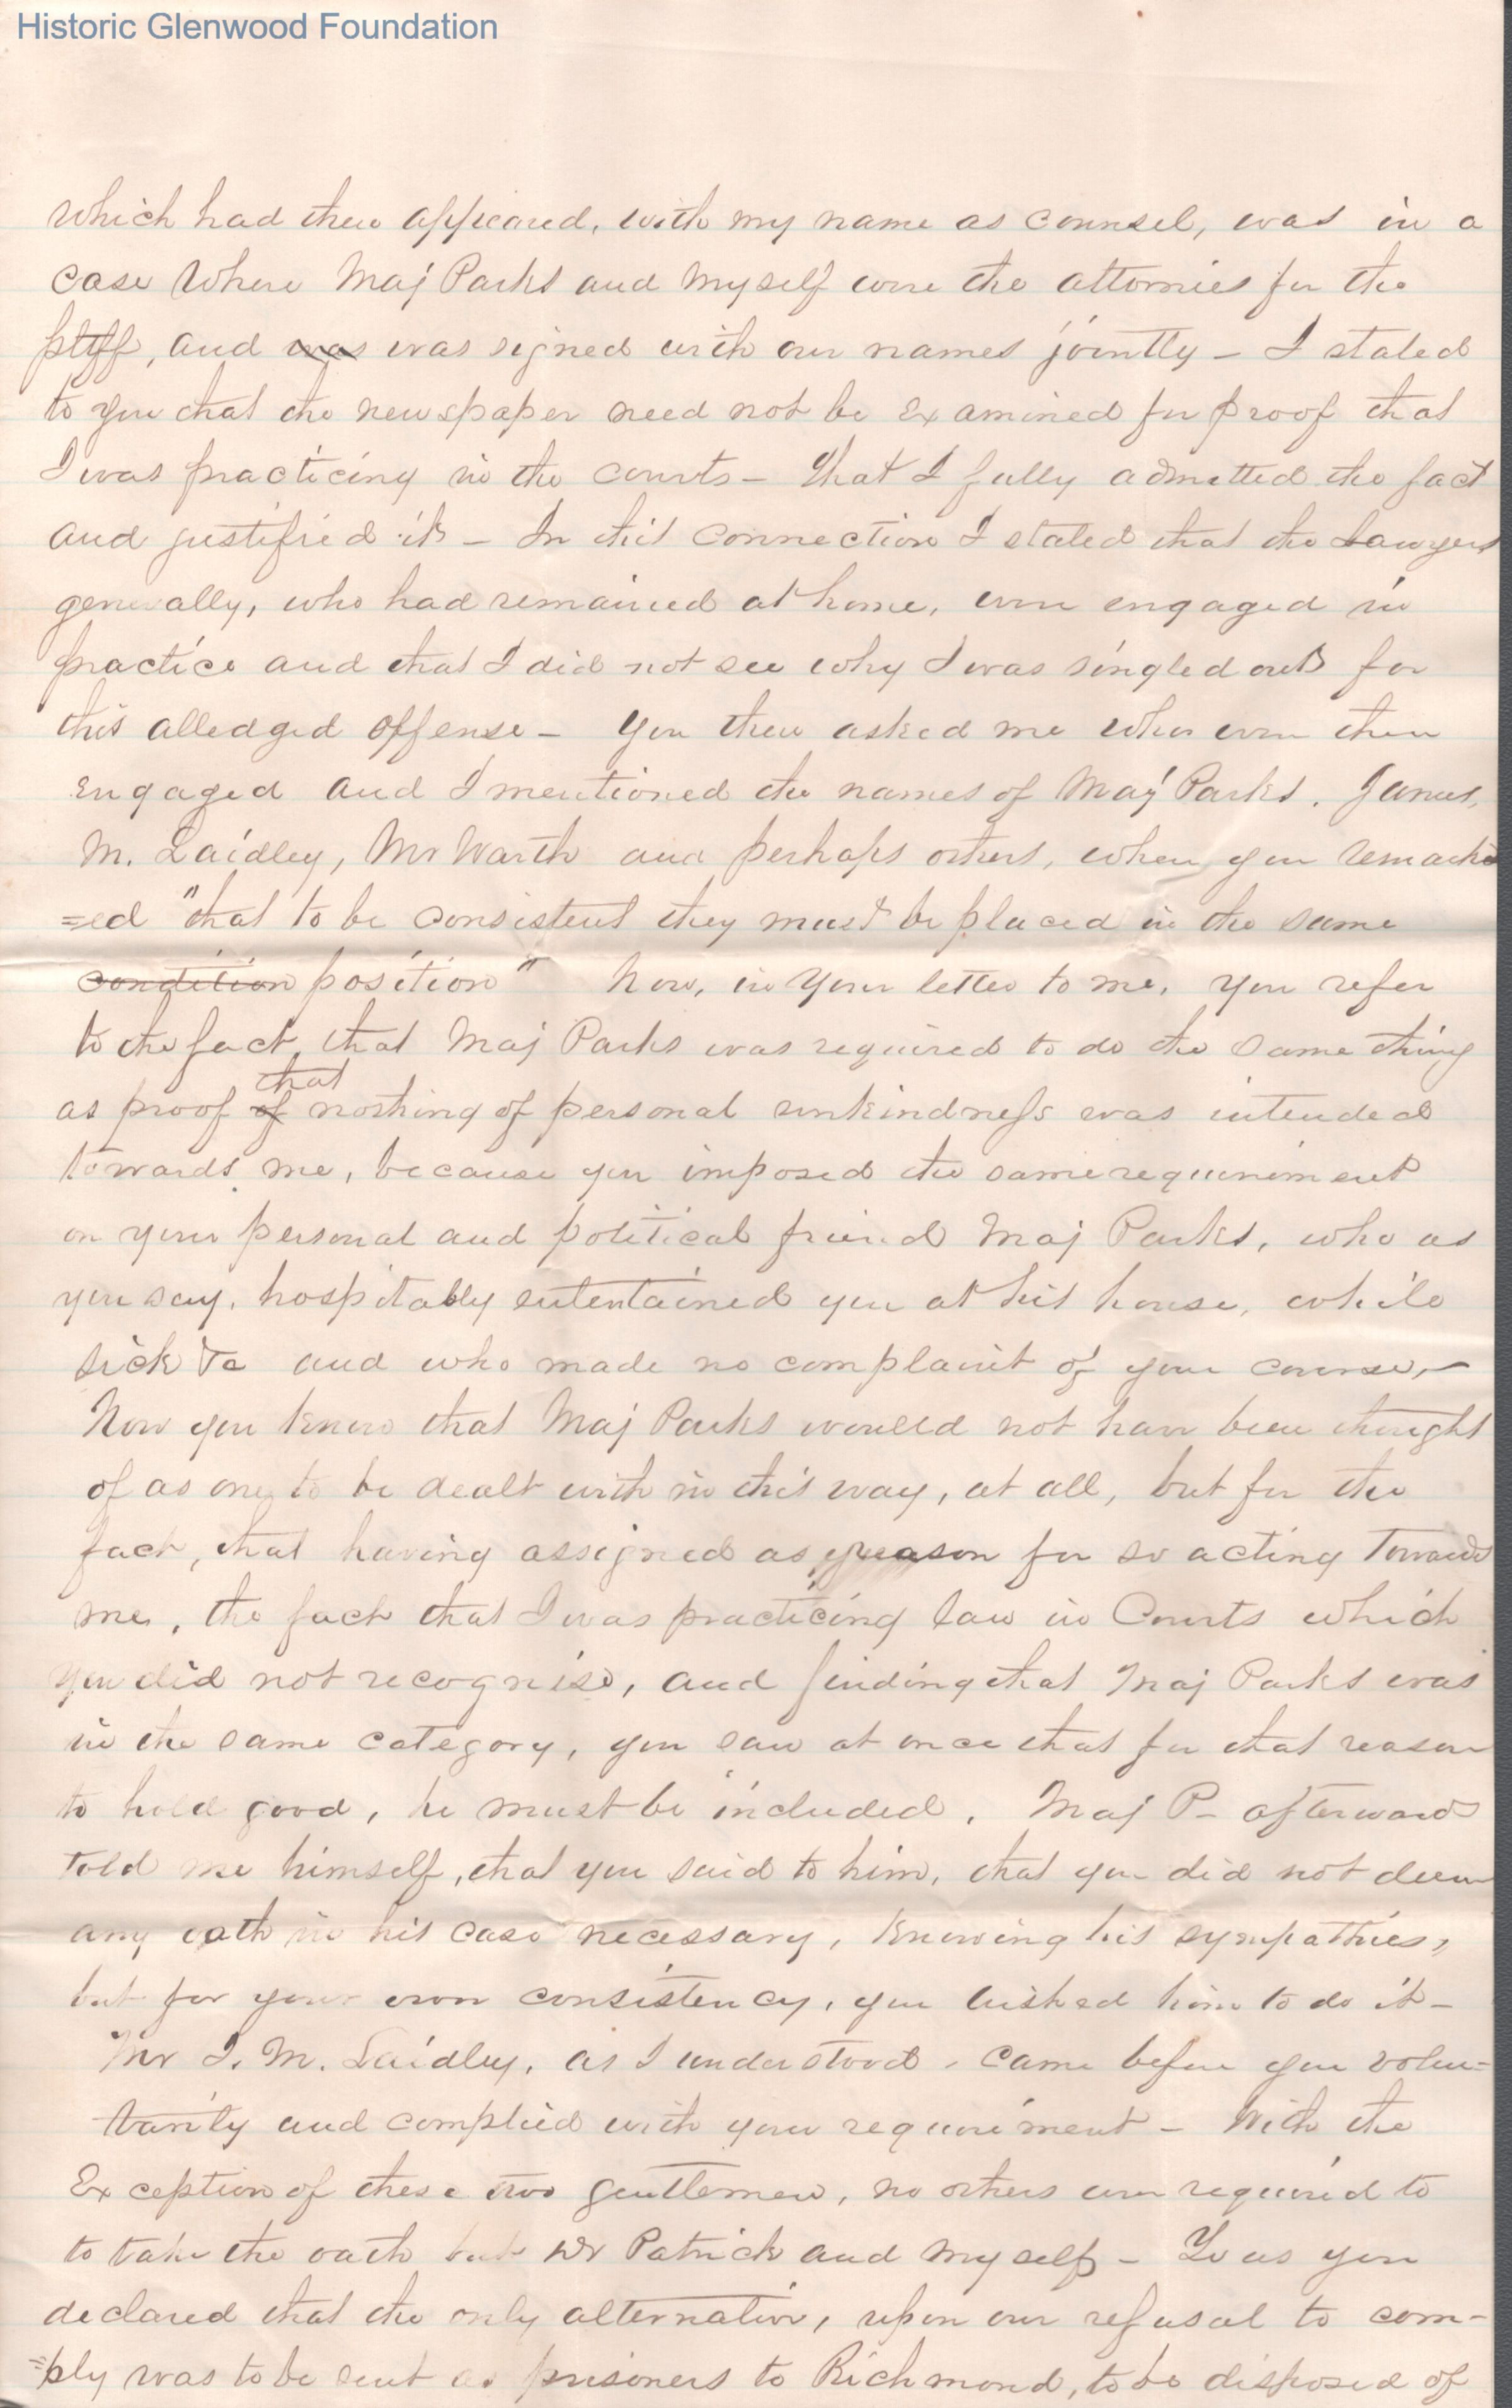 Historic Glenwood Foundation
which had then appeared, with my name as counsel, was in a
case where Maj Parks and myself were the attornies for the
pltff, and was was signed with our names jointly - I stated
to you that the newspaper need not be examined for proof that
I was practicing in the courts - that I fully admitted the fact
and justified it - In this connection I stated that the Lawyers
generally, who had remained at home, were engaged in
practice and that I did not see why I was singled out for
this alledged offense - You then asked me who were then
engaged and I mentioned the names of Maj Parks, James,
M. Laidley, Mr Warth and perhaps others, when you remark
=ed "that to be consistent they must be placed in the same
condition position" Now, in your letter to me, you refer
to the fact, that Maj Parks was required to do the same thing
as proof of that nothing of personal unkindness was intended
towards me, because you imposed the same requirement
on your personal and political friend Maj Parks, who as
you say, hospitably entertained you at his house, while
sick &c and who made no complaint of your course, -
Now you know that Maj Parks would not have been thought
of as one to be dealt with in this way, at all, but for the
fact, that having assigned as reason for so acting towards
me, the fact that I was practicing law in Courts which
you did not recognise, and finding that Maj Parks was
in the same category, you saw at once that for that reason
to hold good, he must be included. Maj P- afterwards
told me himself, that you said to him, that you did not deem
any oath in his case necessary, knowing his sympathies,
but for your own consistency, you wished him to do it -
Mr J. M. Laidley, as I understood, came before you volun-
tarily and complied with your requirement - With the
Exception of these two gentlemen, no others were required to
to take the oath but Dr Patrick and myself - To us you
declared that the only alternative, upon our refusal to com-
=ply was to be sent as prisoners to Richmond, to be disposed of